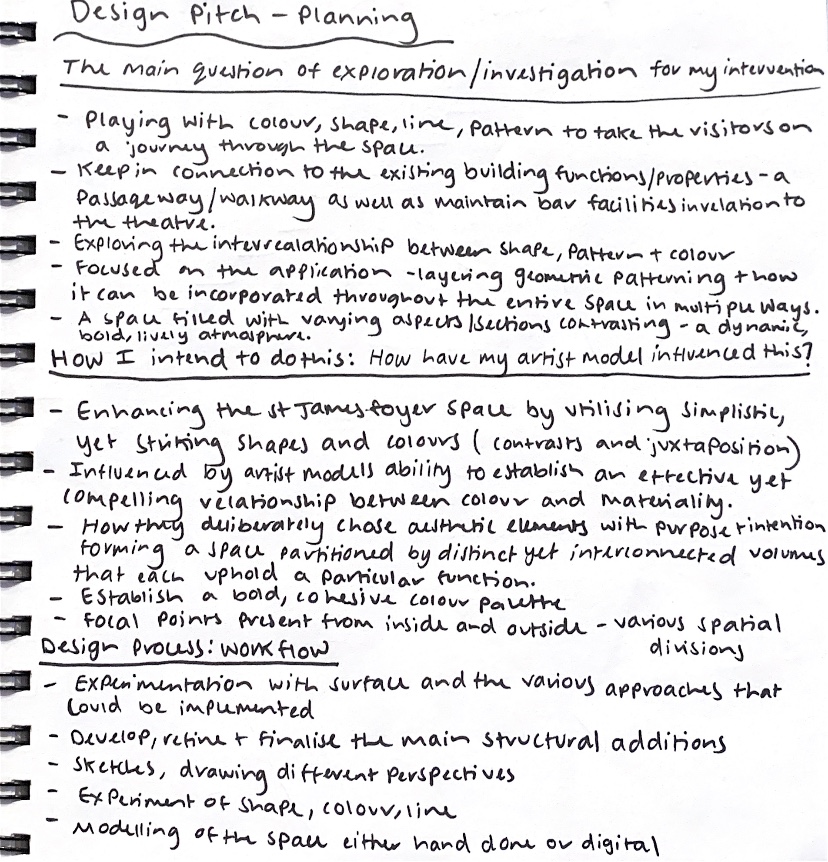 Design Pitch - Planning
The main question of exploration/investigation for my intervention
- Playing with colour, shape, line, pattern to take the visitors on
a journey through the space.
- Keep in connection to the existing building functions/properties - a
passageway/walkway as well as maintain bar facilities in relation to
the theatre.
- Exploring the interrealationship between shape, pattern + colour
- Focused on the application - layering geometric patterning + how
it can be incorporated throughout the entire space in multiple ways.
- A space filled with varying aspects/sections contrasting - a dynamic,
bold, lively atmosphere.
How I intend to do this: How have my artist model influenced this?
- Enhancing the St James foyer space by utilising simplistic,
yet striking shapes and colours (contrasts and juxtaposition)
- Influenced by artist models ability to establish an effective yet
compelling relationship between colour and materiality.
- How they deliberately chose aesthetic elements with purpose + intention
forming a space partitioned by distinct yet interconnected volumes
that each uphold a particular function.
- Establish a bold, cohesive colour palette
- Focal points present from inside and outside - various spatial
divisions
Design Process: Workflow
- Experimentation with surface and the various approaches that
could be implemented
- Develop, refine + finalise the main structural additions
- Sketches, drawing different perspectives
- Experiment of shape, colour, line
- Modelling of the space either hand done or digital